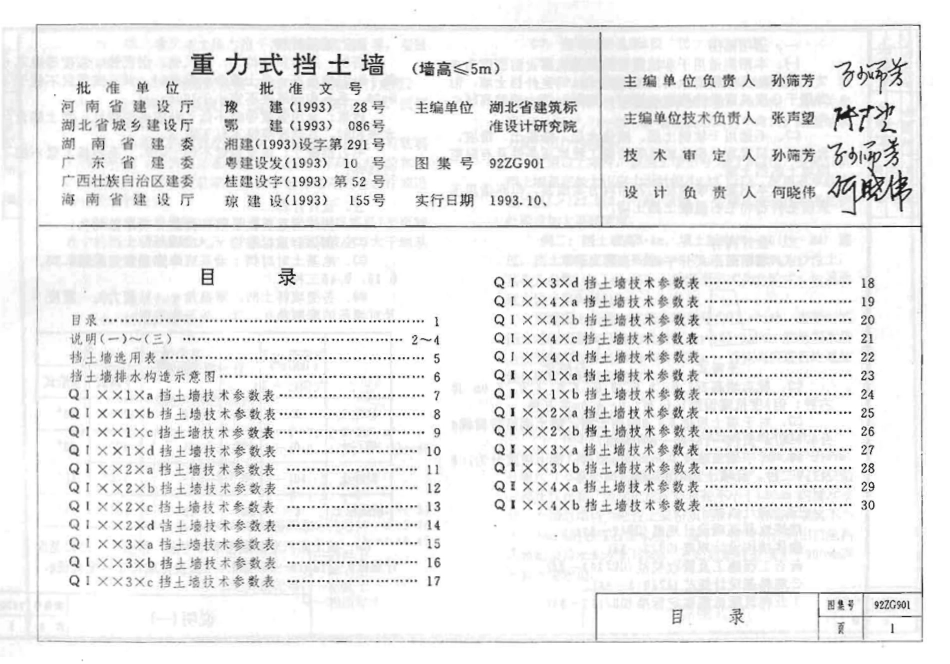 重力式挡土墙 (墙高≤5m)
批准单位 批准文号
河南省建设厅 豫建(1993) 28号
湖北省城乡建设厅 鄂建(1993) 086号
湖南省建委 湘建(1993)设字第291号
广东省建委 粤建设发(1993) 10号
广西壮族自治区建委 桂建设字(1993)第52号
海南省建设厅 琼建设(1993) 155号
主编单位 湖北省建筑标
准设计研究院
图集号 92ZG901
实行日期 1993.10、
主编单位负责人 孙筛芳 孙筛芳
主编单位技术负责人 张声望
技术审定人 孙筛芳 孙筛芳
设计负责人 何晓伟 何晓伟
目 录
目录 1
说明(一)~(三) 2~4
挡土墙选用表 5
挡土墙排水构造示意图 6
QⅠ××1×a挡土墙技术参数表 7
QⅠ××1×b挡土墙技术参数表 8
QⅠ××1×c挡土墙技术参数表 9
QⅠ××1×d挡土墙技术参数表 10
QⅠ××2×a挡土墙技术参数表 11
QⅠ××2×b挡土墙技术参数表 12
QⅠ××2×c挡土墙技术参数表 13
QⅠ××2×d挡土墙技术参数表 14
QⅠ××3×a挡土墙技术参数表 15
QⅠ××3×b挡土墙技术参数表 16
QⅠ××3×c挡土墙技术参数表 17
QⅠ××3×d挡土墙技术参数表 18
QⅠ××4×a挡土墙技术参数表 19
QⅠ××4×b挡土墙技术参数表 20
QⅠ××4×c挡土墙技术参数表 21
QⅠ××4×d挡土墙技术参数表 22
QⅡ××1×a挡土墙技术参数表 23
QⅡ××1×b挡土墙技术参数表 24
QⅡ××2×a挡土墙技术参数表 25
QⅡ××2×b挡土墙技术参数表 26
QⅡ××3×a挡土墙技术参数表 27
QⅡ××3×b挡土墙技术参数表 28
QⅡ××4×a挡土墙技术参数表 29
QⅡ××4×b挡土墙技术参数表 30
目 录
图集号 92ZG901
页 1